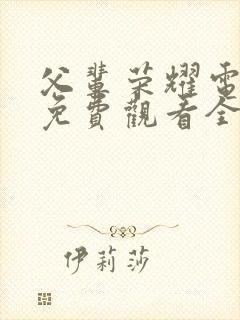 父輩荣耀電
免費觀看全
伊莉莎